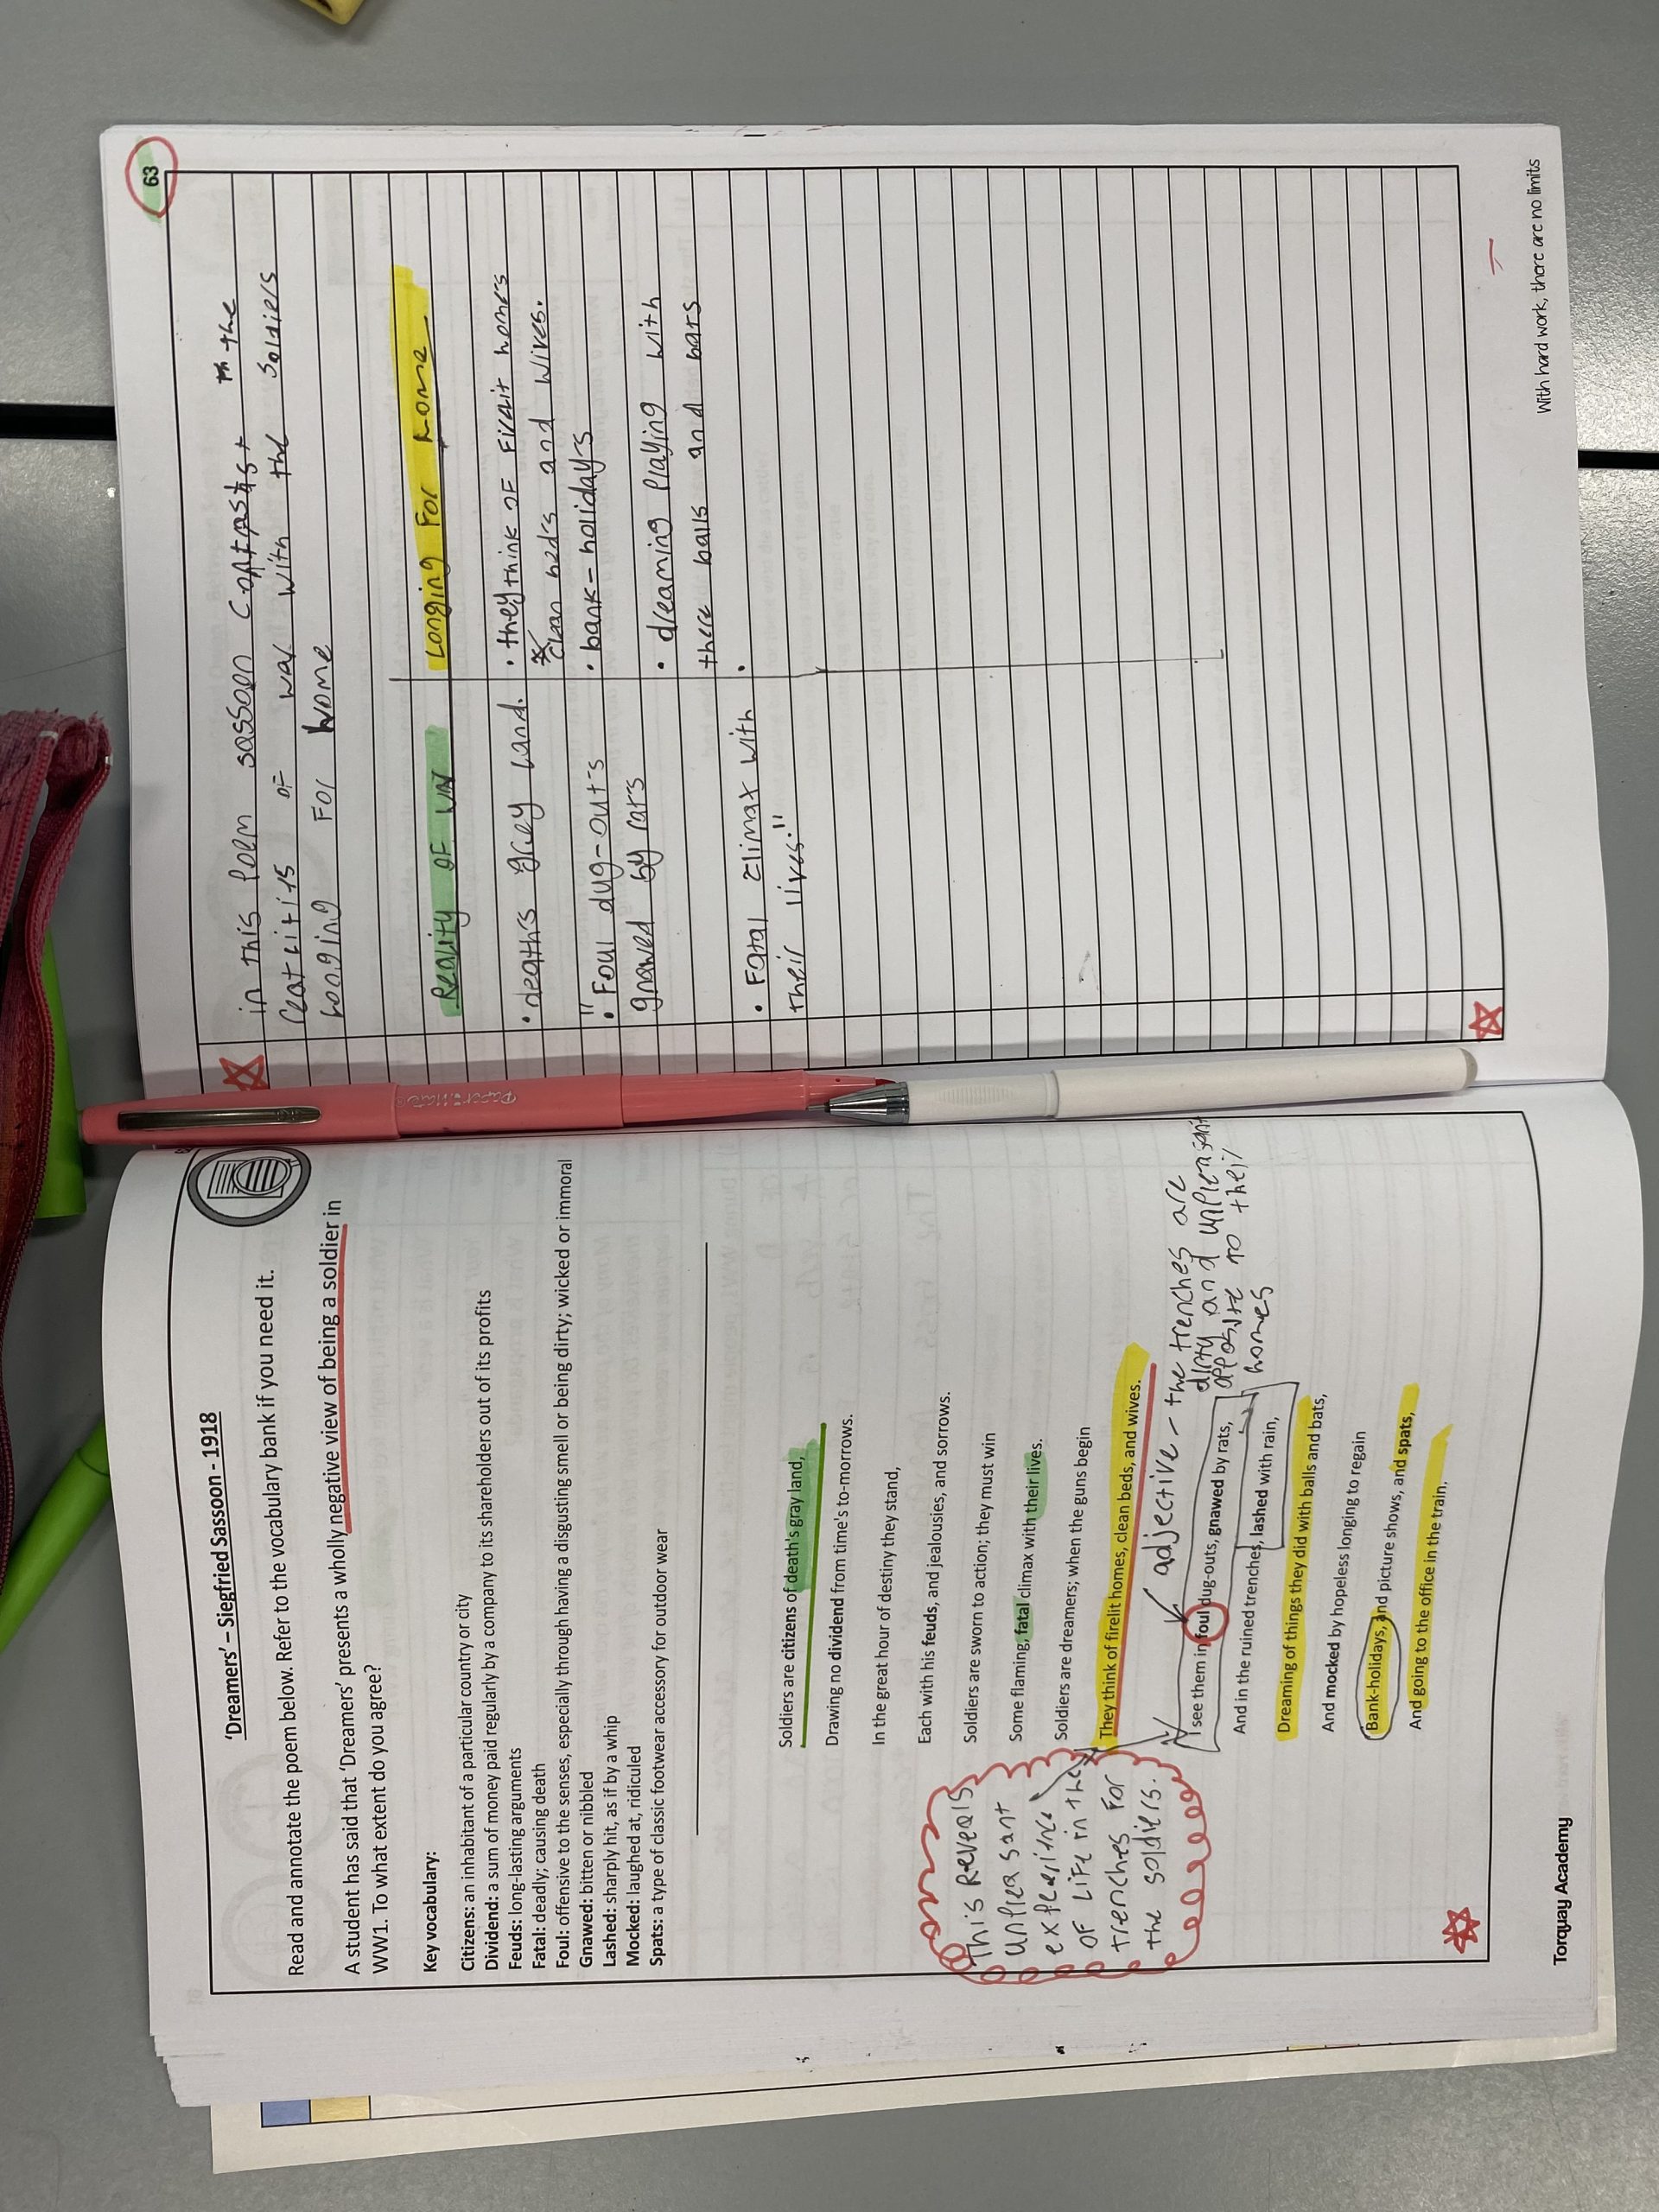 'Dreamers' – Siegfried Sassoon - 1918
Read and annotate the poem below. Refer to the vocabulary bank if you need it.
A student has said that 'Dreamers' presents a wholly negative view of being a soldier in
WW1. To what extent do you agree?
Key vocabulary:
Citizens: an inhabitant of a particular country or city
Dividend: a sum of money paid regularly by a company to its shareholders out of its profits
Feuds: long-lasting arguments
Fatal: deadly; causing death
Foul: offensive to the senses, especially through having a disgusting smell or being dirty; wicked or immoral
Gnawed: bitten or nibbled
Lashed: sharply hit, as if by a whip
Mocked: laughed at, ridiculed
Spats: a type of classic footwear accessory for outdoor wear
Soldiers are citizens of death's gray land,
Drawing no dividend from time's to-morrows.
In the great hour of destiny they stand,
Each with his feuds, and jealousies, and sorrows.
Soldiers are sworn to action; they must win
Some flaming, fatal climax with their lives.
Soldiers are dreamers; when the guns begin
They think of firelit homes, clean beds, and wives.
I see them in foul dug-outs, gnawed by rats,
And in the ruined trenches, lashed with rain,
Dreaming of things they did with balls and bats,
And mocked by hopeless longing to regain
Bank-holidays, and picture shows, and spats,
And going to the office in the train.
This Reveals
unpleasant
experience
of Life in the
trenches For
the soldiers.
adjective - the trenches are
dirty and unpleasant
opposite to their
homes
Torquay Academy
63
in this Poem sassoon contrasts the
reatitis of war with the soldiers
Longing For home
Reality of war
Longing For home
• deaths grey Land.
• "Foul dug-outs
gnawed by rats
• Fatal climax with
their lives."
• they think of Firelit homes
clean beds and wives.
• bank-holidays
• dreaming playing with
there balls and bats
•
With hard work, there are no limits